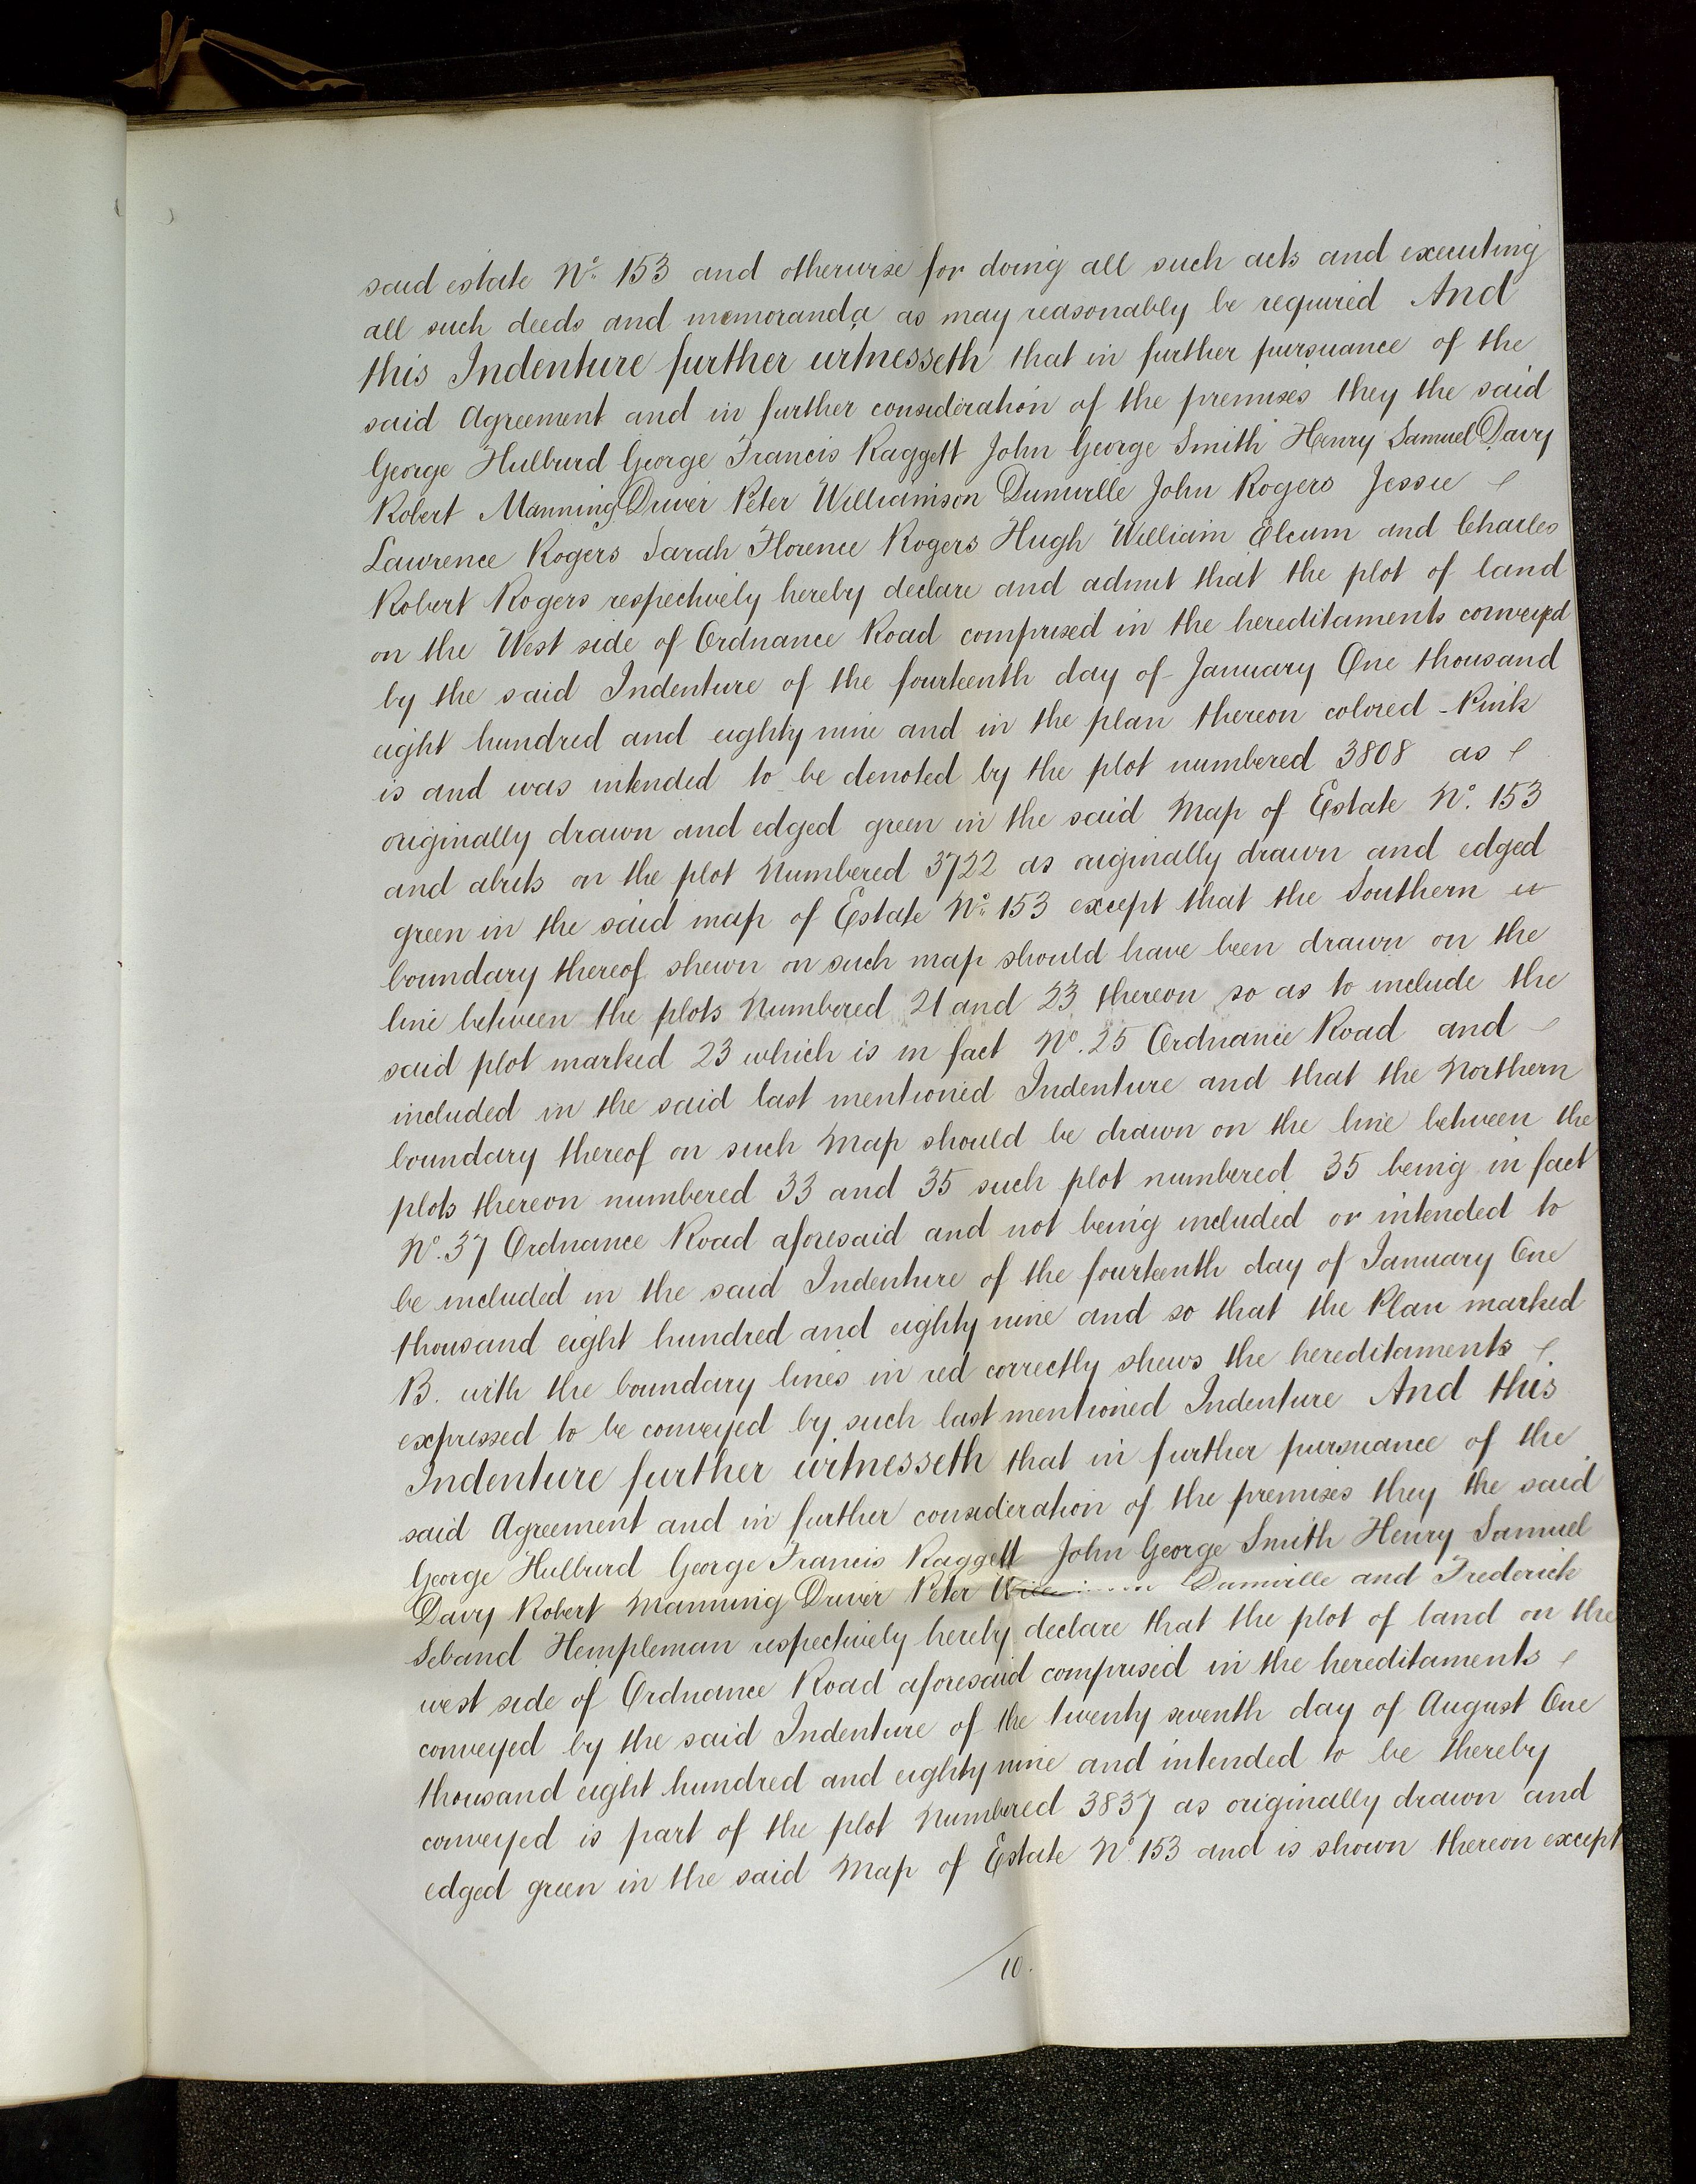 said estate No. 153 and otherwise for doing all such acts and executing
all such deeds and memoranda as may reasonably be required And
this Indenture further witnesseth that in further pursuance of the
said Agreement and in further consideration of the premises they the said
George Hulburd George Francis Raggett John George Smith Henry Samuel Davy
Robert Manning Driver Peter Williamson Dumville John Rogers Jessie
Lawrence Rogers Sarah Florence Rogers Hugh William Elcum and Charles
Robert Rogers respectively hereby declare and admit that the plot of land
on the West side of Ordnance Road comprised in the hereditaments conveyed
by the said Indenture of the fourteenth day of January One thousand
eight hundred and eighty nine and in the plan thereon colored Pink
is and was intended to be denoted by the plot numbered 3808 as
originally drawn and edged green in the said Map of Estate No. 153
and abuts on the plot Numbered 3722 as originally drawn and edged
green in the said map of Estate No. 153 except that the Southern
boundary thereof shewn on such map should have been drawn on the
line between the plots Numbered 21 and 23 thereon so as to include the
said plot marked 23 which is in fact No. 25 Ordnance Road and
included in the said last mentioned Indenture and that the Northern
boundary thereof on such Map should be drawn on the line between the
plots thereon numbered 33 and 35 such plot numbered 35 being in fact
No. 37 Ordnance Road aforesaid and not being included or intended to
be included in the said Indenture of the fourteenth day of January One
thousand eight hundred and eighty nine and so that the Plan marked
B. with the boundary lines in red correctly shews the hereditaments
expressed to be conveyed by such last mentioned Indenture And this
Indenture further witnesseth that in further pursuance of the
said Agreement and in further consideration of the premises they the said
George Hulburd George Francis Raggett John George Smith Henry Samuel
Davy Robert Manning Driver Peter Williamson Dumville and Frederick
Seband Hempleman respectively hereby declare that the plot of land on the
west side of Ordnance Road aforesaid comprised in the hereditaments
conveyed by the said Indenture of the twenty seventh day of August One
thousand eight hundred and eighty nine and intended to be thereby
conveyed is part of the plot Numbered 3837 as originally drawn and
edged green in the said Map of Estate No. 153 and is shown thereon except
10.